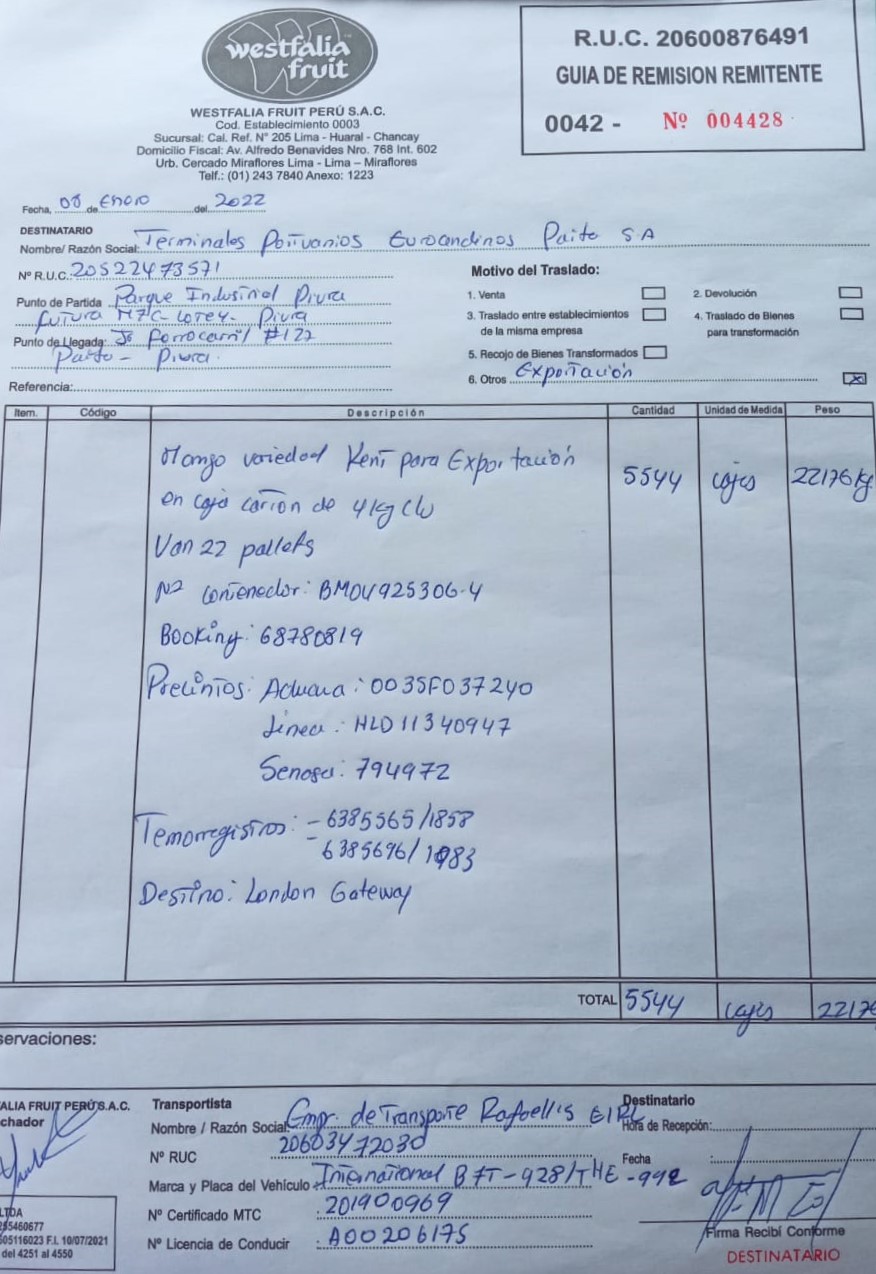 westfalia
fruit
WESTFALIA FRUIT PERÚ S.A.C.
Cod. Establecimiento 0003
Sucursal: Cal. Ref. N° 205 Lima - Huaral - Chancay
Domicilio Fiscal: Av. Alfredo Benavides Nro. 768 Int. 602
Urb. Cercado Miraflores Lima - Lima – Miraflores
Telf.: (01) 243 7840 Anexo: 1223
R.U.C. 20600876491
GUIA DE REMISION REMITENTE
0042 - Nº 004428
Fecha, 08 de Enero del 2022
DESTINATARIO
Nombre/ Razón Social: Terminales Portuarios Euroandinos Paita S.A
Nº R.U.C. 20522473571
Punto de Partida Parque Industrial Piura
futura M7C- Piura
Punto de Llegada: Jr ferrocarril #127
Paita - Piura.
Referencia:
Motivo del Traslado:
1. Venta
2. Devolución
3. Traslado entre establecimientos
de la misma empresa
4. Traslado de Bienes
para transformación
5. Recojo de Bienes Transformados
6. Otros Exportación X
Item. Código Descripción Cantidad Unidad de Medida Peso
Mango variedad Kent para Exportación 5544 cajas 22176 kg
en caja carton de 4 kg c/u
Van 22 pallets
Nº contenedor: BMOU925306-4
Booking: 68780819
Precintos: Aduana: 0035F037240
Linea: HLD11340947
Senasa: 794972
Temorregistros: - 6385565/1858
- 6385696/1983
Destino: London Gateway
TOTAL 5544 cajas 22176
servaciones:
ALIA FRUIT PERÚ S.A.C.
chador
LTDA
255460677
605116023 F.I. 10/07/2021
del 4251 al 4550
Transportista
Nombre / Razón Social Empr. de Transporte Rafaell's EIRL
Nº RUC 20603472030
Marca y Placa del Vehículo International B7T-928/THE-992
Nº Certificado MTC : 201900969
Nº Licencia de Conducir : A00206175
Destinatario
Hora de Recepción:
Fecha
Firma Recibí Conforme
DESTINATARIO